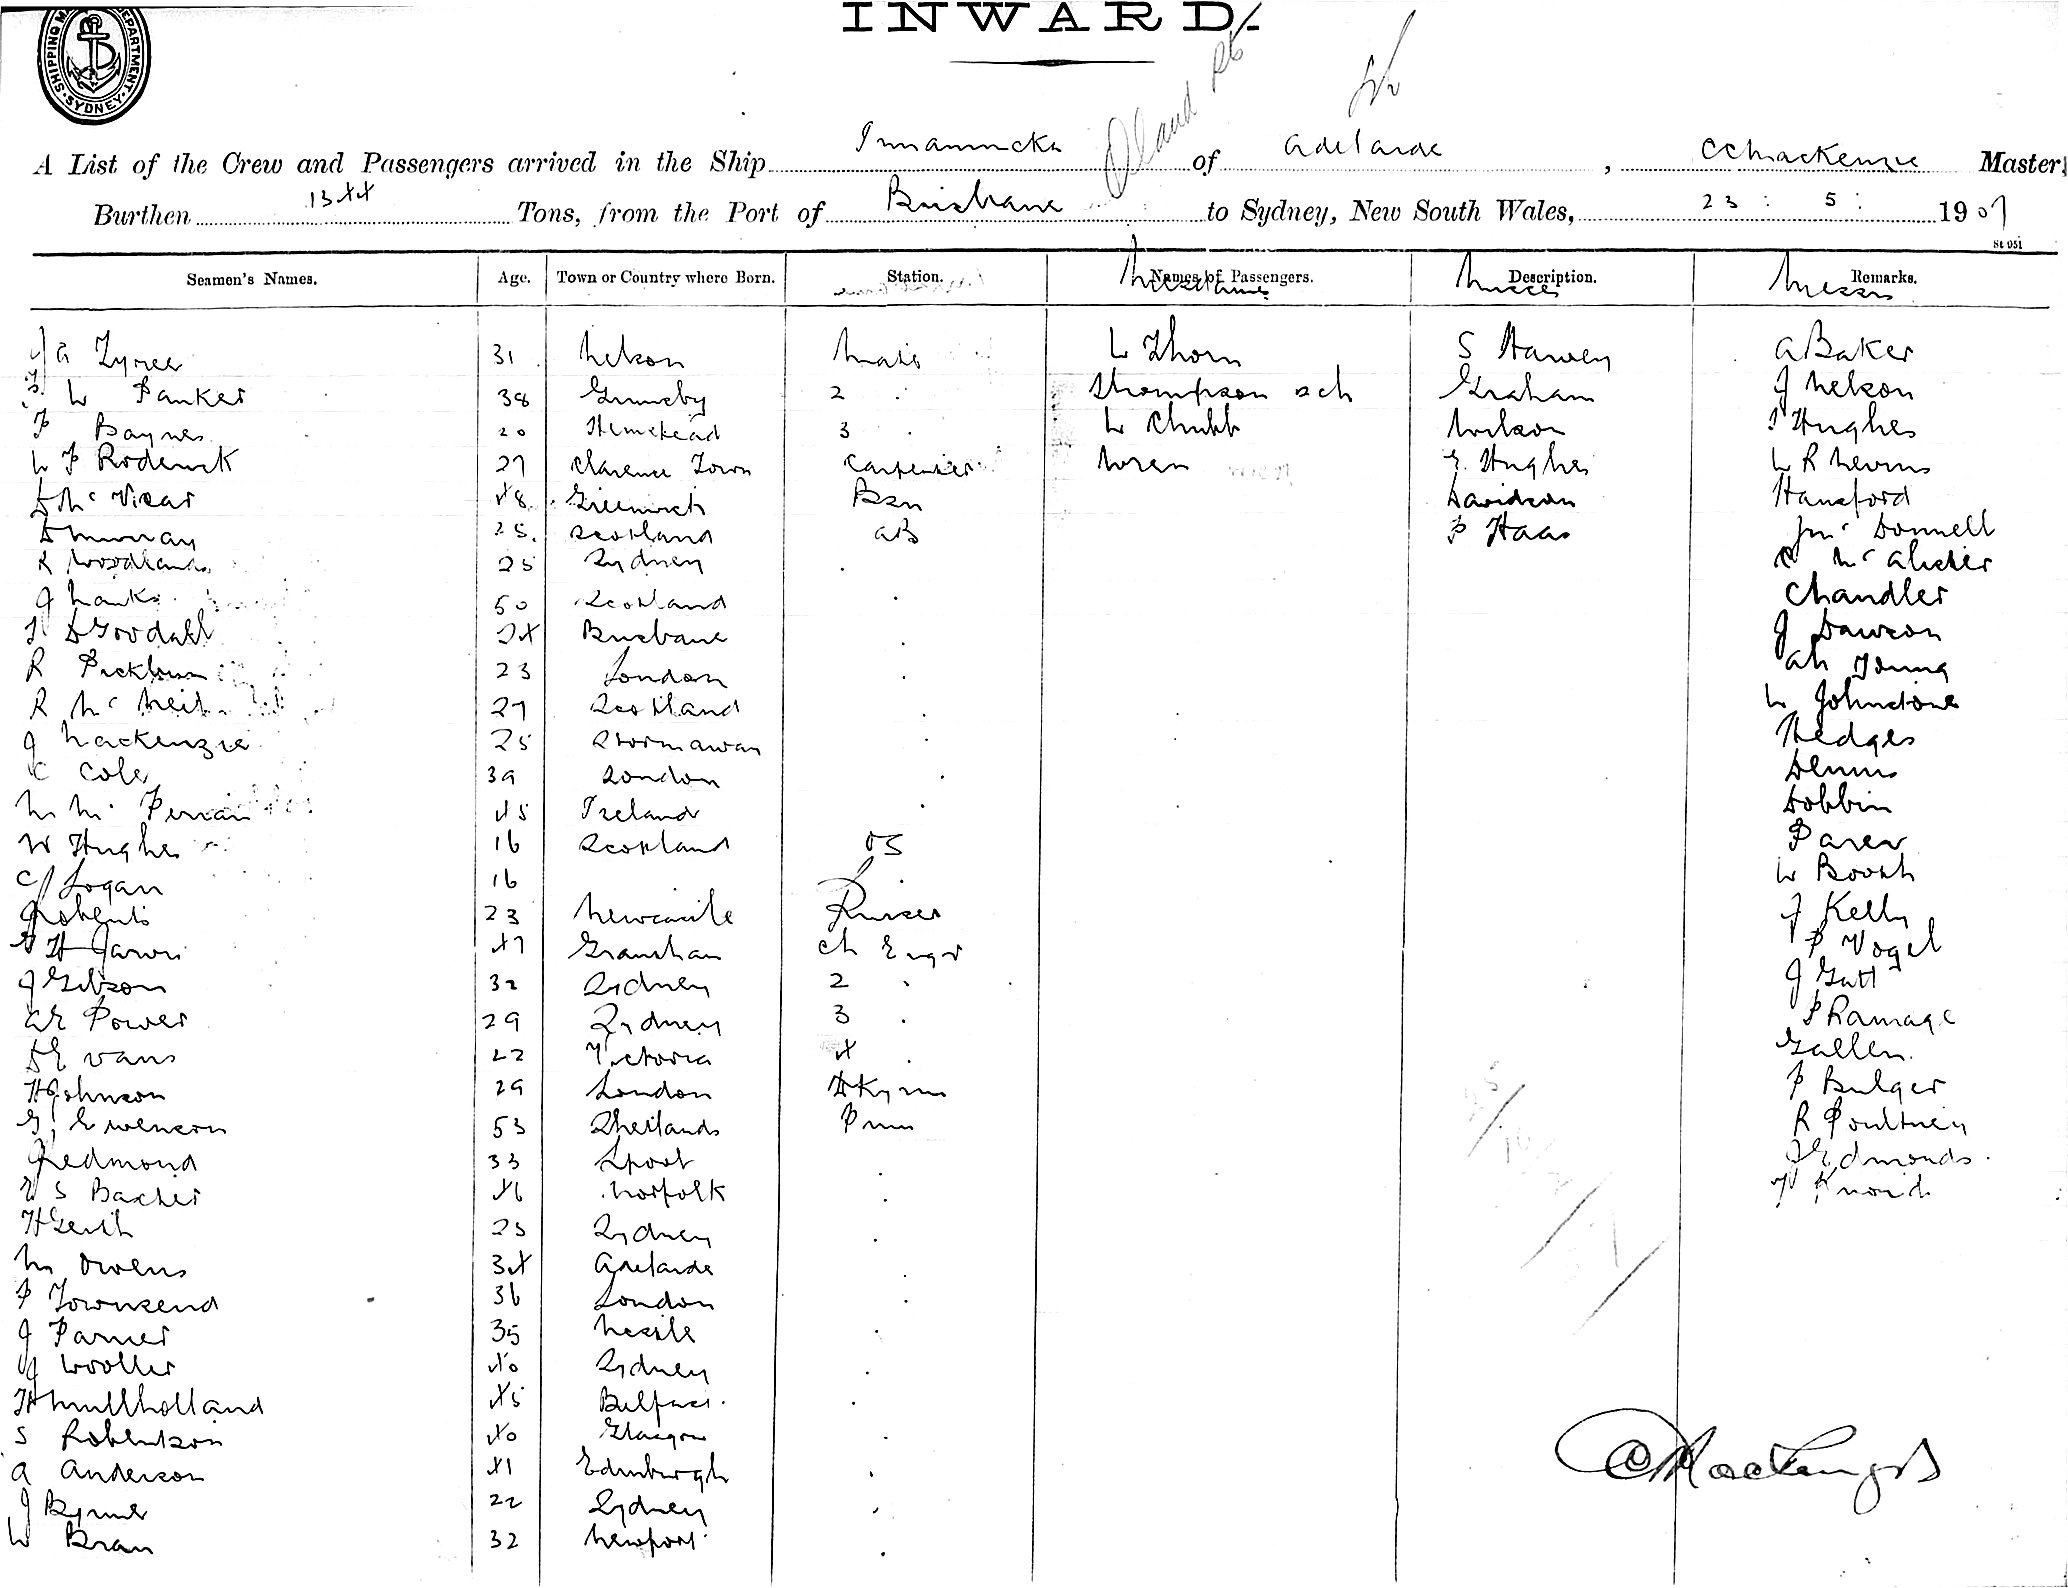 INWARD/-
SHIPPING MA DEPARTMENT. SYDNEY.
A List of the Crew and Passengers arrived in the Ship Innamincka of Adelaide, CC Mackenzie Master,
Burthen Tons, from the Port of Brisbane to Sydney, New South Wales, 23 : 5 : 1907
St 051
Seamen's Names. Age. Town or Country where Born. Station. Names of Passengers. Description. Remarks.
Misses Messrs
Tyree 31 Nelson Mate W Thorn S Harvey A Baker
W Parker 38 Grimsby 2 Thompson & ch Graham J Nelson
F Baynes 20 Hemstead 3 W Chubb Wilson Hughes
W P Roderick 27 Clarence Town Carpenter Wren E Hughes W R Nevins
D McVicar 48 Greenwich Bsn Davidson Hansford
D Murray 25 Scotland AB P Haas J McDonnell
R Woodlands 25 Sydney McAlister
J Hanks 50 Scotland Chandler
D Goodall 24 Brisbane J Dawson
R 23 London Young
R McNeil 27 Scotland W Johnstone
J Mackenzie 25 Stornaway Hedges
C Cole 39 London Dennis
45 Ireland Dobbin
W Hughes 16 Scotland OS Parer
C J Logan 16 W Booth
J Roberts 23 Newcastle Purser J Kelly
H Jarvis 47 Grantham Ch Engr P Vogel
J Gibson 32 Sydney 2 J Gatt
AE Power 29 Sydney 3 P Ramage
D Evans 22 Victoria 4 Gallen
H Johnson 29 London Dkymn P Bulger
G Ewenson 53 Shetlands Fmn R Poultney
J Redmond 33 Lpool J Edmonds
E S Baxter 46 Norfolk
H 25 Sydney
M Owens 34 Adelaide
P Townsend 36 London
J Parner 35 Ncstle
J Wooller 40 Sydney
H Mullholland 45 Belfast
S Robertson 40 Glasgow
A Anderson 41 Edinburgh
J Byrne 22 Sydney
W Bran 32 Newport
CC Mackenzie